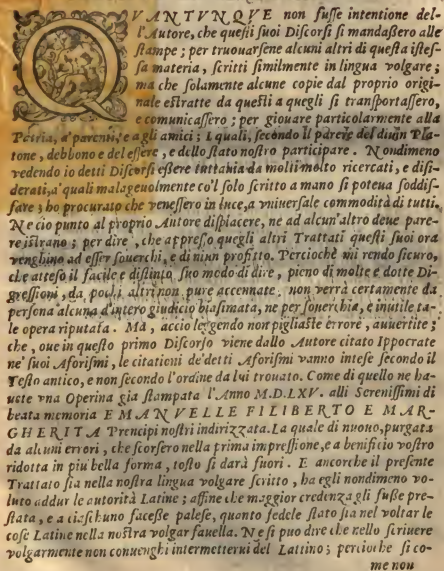 QVANTVNQVE non fusse intentione del-
l'Autore, che questi suoi Discorsi si mandassero alle
stampe; per truouarsene alcuni altri di questa istes-
sa materia, scritti similmente in lingua volgare;
ma che solamente alcune copie dal proprio origi-
nale estratte da questi a quegli si transportassero,
e comunicassero; per giouare particolarmente alla
Patria, a' parenti, e agli amici; i quali, secondo il parere del diuin Pla-
tone, debbono e del essere, e dello stato nostro participare. Nondimeno
vedendo io detti Discorsi essere tuttauia da molti molto ricercati, e disi-
derati, a' quali malageuolmente co'l solo scritto a mano si poteua soddis-
fare; ho procurato che venessero in luce, a vniuersale commodità di tutti.
Ne cio punto al proprio Autore dispiacere, ne ad alcun'altro deue pare-
re istrano; per dire, che appresso quegli altri Trattati questi suoi ora
venghino ad esser souerchi, e di niun profitto. Percioche mi rendo sicuro,
che atteso il facile e distinto suo modo di dire, pieno di molte e dotte Di-
gressioni, da pochi altri non pure accennate, non verrà certamente da
persona alcuna d'intero giudicio biasimata, ne per souerchia, e inutile ta-
le opera riputata. Ma, accio leggendo non pigliaste errore, auuertite;
che, oue in questo primo Discorso viene dallo Autore citato Ippocrate
ne' suoi Aforismi, le citationi de' detti Aforismi vanno intese secondo il
Testo antico, e non secondo l'ordine da lui trouato. Come di quello ne ha-
uete vna Operina gia stampata l'Anno M.D.LXV. alli Serenissimi di
beata memoria EMANVELLE FILIBERTO E MAR-
GHERITA Prencipi nostri indirizzata. La quale di nuouo, purgata
da alcuni errori, che scorsero nella prima impressione, e a benificio vostro
ridotta in piu bella forma, tosto si darà fuori. E ancorche il presente
Trattato sia nella nostra lingua volgare scritto, ha egli nondimeno vo-
luto addur le autorità Latine; affine che maggior credenza gli fusse pre-
stata, e a ciaschuno facesse palese, quanto fedele stato sia nel voltar le
cose Latine nella nostra volgar fauella. Ne si puo dire che nello scriuere
volgarmente non conuenghi intermetterui del Lattino; percioche si co-
me non